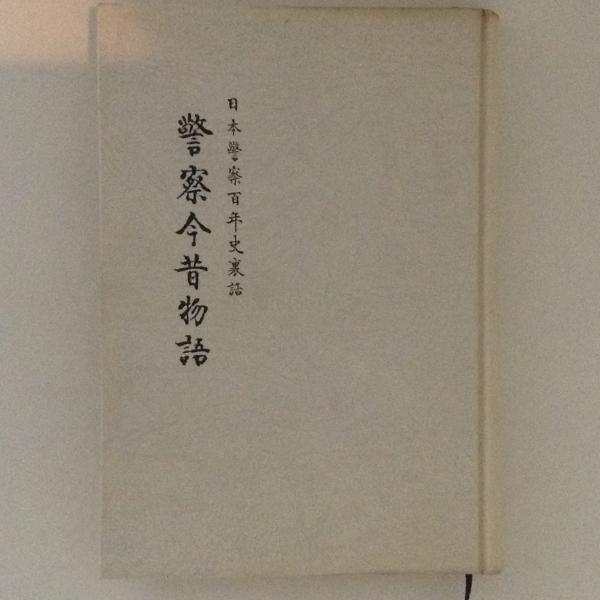 日本警察百年史裏話
警察今昔物語